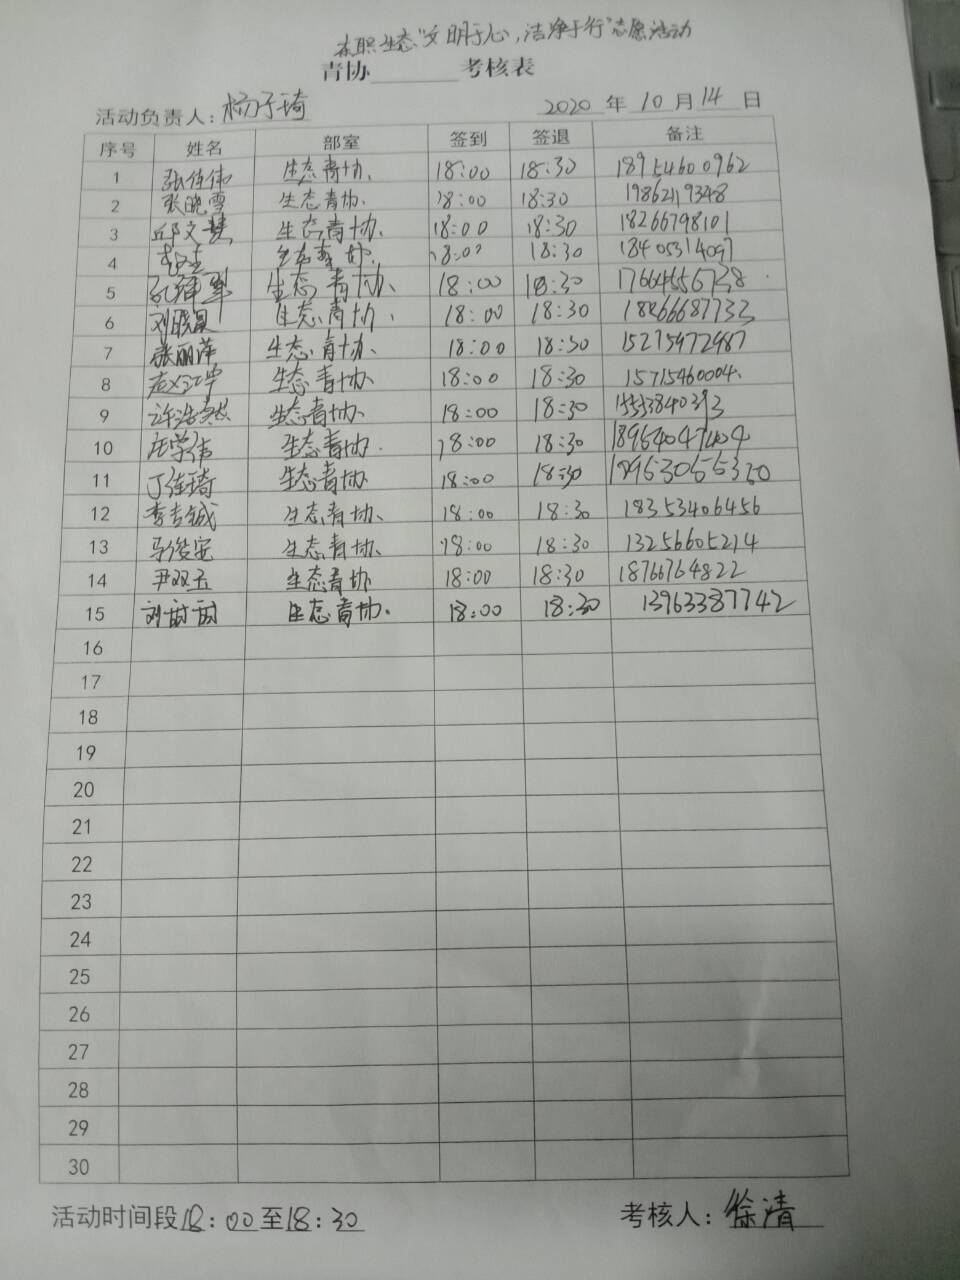 东职生态“文明于心，洁净于行”志愿活动
青协______考核表
活动负责人：杨子琦 2020 年 10 月 14 日
序号 姓名 部室 签到 签退 备注
1 张佳伟 生态青协. 18:00 18:30 18954600962
2 张晓雪 生态青协. 18:00 18:30 19862119348
3 邱文慧 生态青协. 18:00 18:30 18266798101
4 生态青协. 18:00 18:30 18405314097
5 生态青协. 18:00 18:30
6 刘晓昊 生态青协. 18:00 18:30 18266687733
7 张丽萍 生态青协. 18:00 18:30 15275972987
8 赵江华 生态青协. 18:00 18:30 15715460004.
9 许浩然 生态青协. 18:00 18:30
10 庄学伟 生态青协. 18:00 18:30
11 丁佳琦 生态青协. 18:00 18:30
12 李吉钺 生态青协. 18:00 18:30 18353406456
13 马俊安 生态青协. 18:00 18:30 13256605214
14 尹双玉 生态青协 18:00 18:30 18766764822
15 刘甜甜 生态青协. 18:00 18:30 13963387742
16
17
18
19
20
21
22
23
24
25
26
27
28
29
30
活动时间段18:00至18:30 考核人：徐清